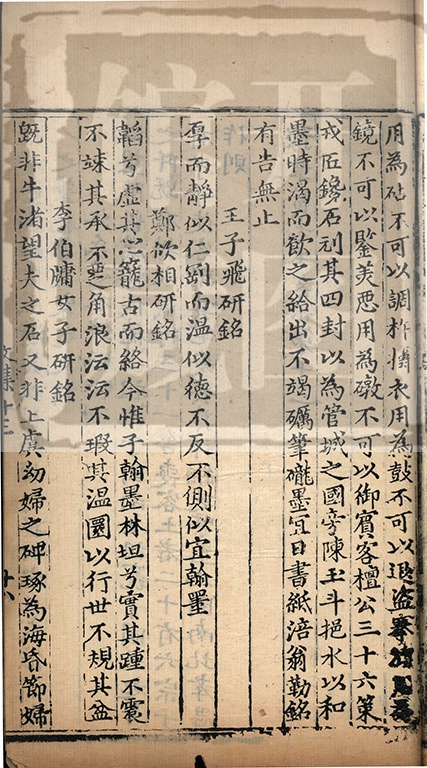 用為砧不可以調杵擣衣用為鼓不可以退盜
鏡不可以鑒美惡用為礅不可以御賓客檀公三十六策
戎匠鑱石刓其四封以為管城之國旁陳玉斗挹水以和
墨時渴而飲之給出不竭礪筆礲墨宜日書紙涪翁勒銘
有告無止
王子飛研銘
厚而靜似仁劌而温似德不反不側似宜翰墨
鄭攸相研銘
韜兮虛其心籠古而絡今惟子翰墨林坦兮實其踵不震
不竦其承不之角浪沄沄不瑕其温圜以行世不規其盆
李伯牗女子研銘
既非牛渚望夫之石又非上虞幼婦之碑琢為海昏節婦
文集十三
十八